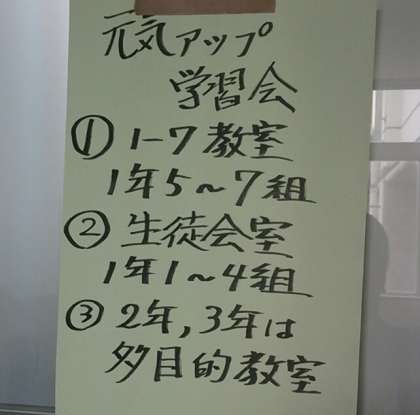 元気アップ
学習会
① 1-7教室
1年5〜7組
② 生徒会室
1年1〜4組
③ 2年,3年は
多目的教室